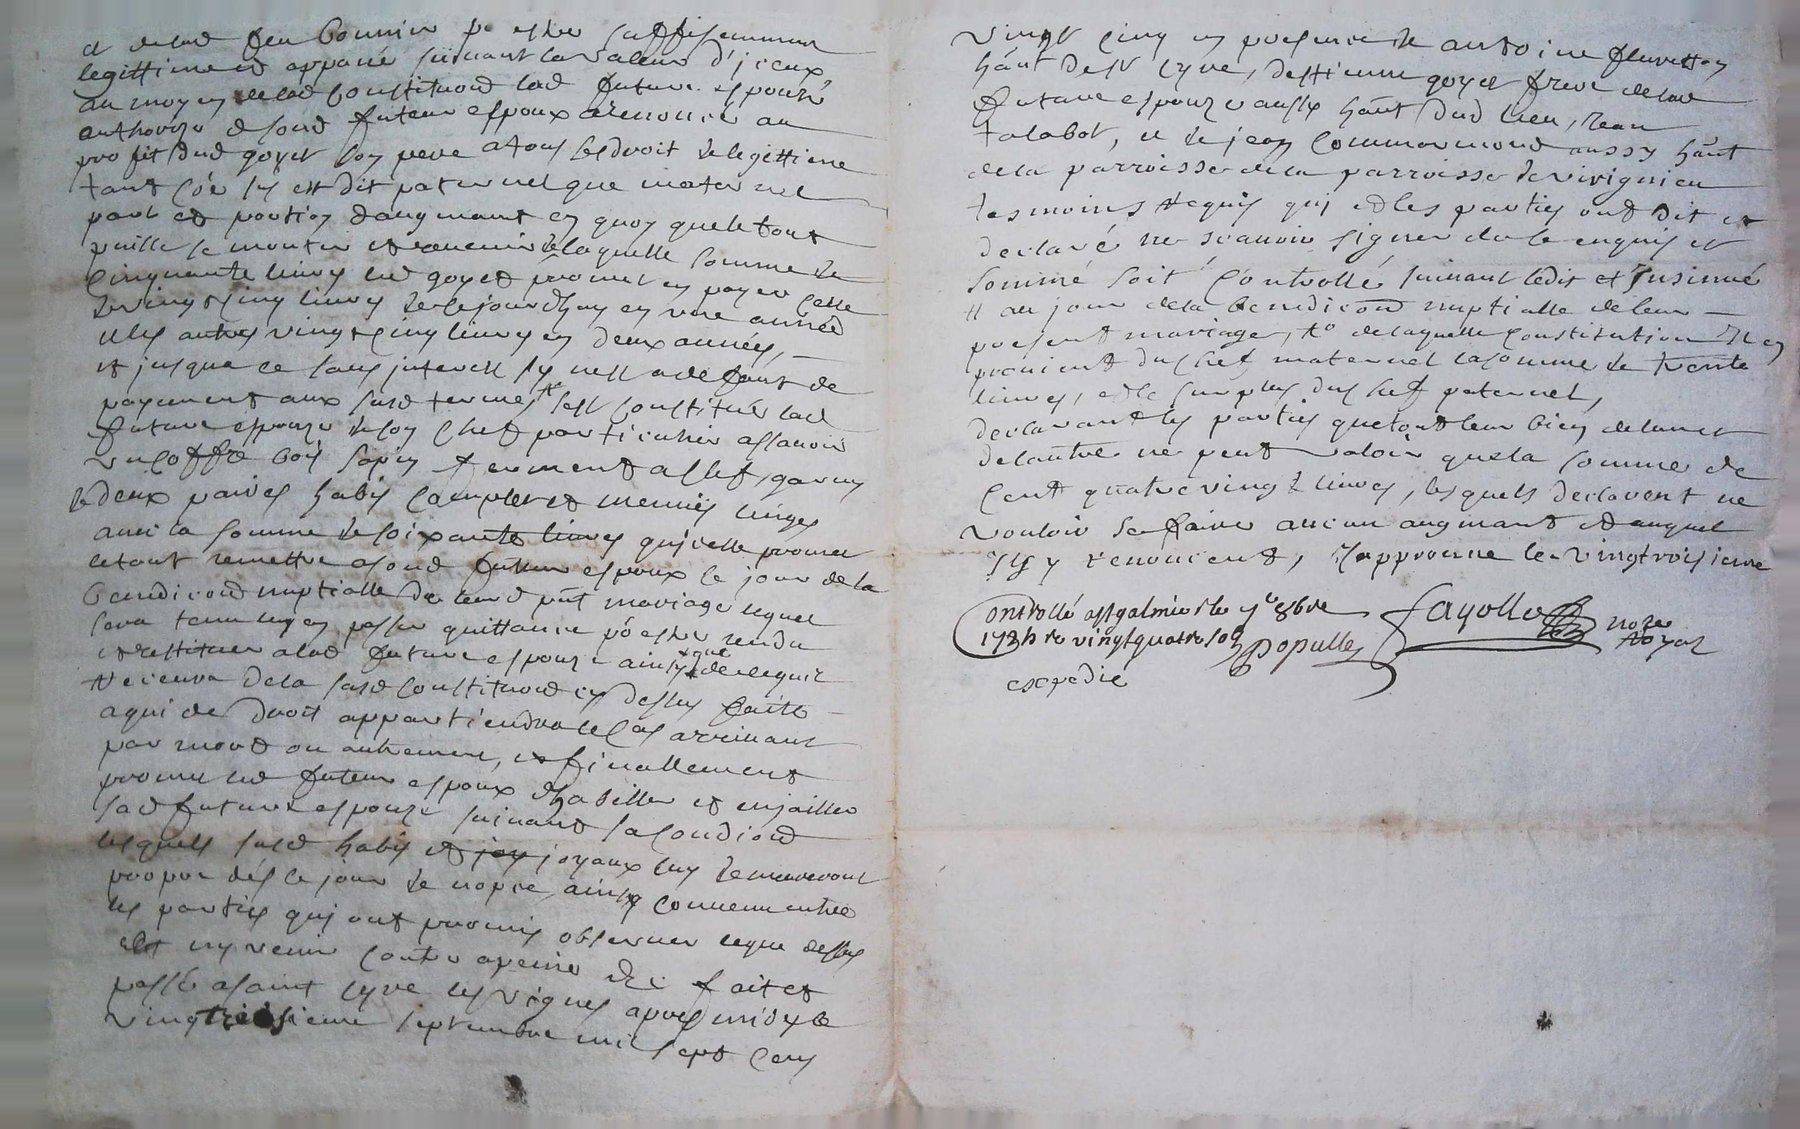 et de lad feu Connin po estre suffisemment
legittimée et appané suivant la valeur d'iceux,
au moyen de lad constituon lad future espouze
authorize de sond futeur espoux a renoncé au
profit dud goyet son pere a tous les droit de legittime
tant coe sy est dit paternel que maternel
part et portion d'augmant en quoy que le tout
puisse se monter et revenir de laquelle somme de
cinquante livres led goyet promet en payer celle
de vingt cinq livres de ce jourdhuy en une année
et les autres vingt cinq livres en deux années,
et jusque ce sans interest sy nest a defaut de
payement aux susd termes, sest constitué lad
future espouze de son chef particulier assavoir
un coffre bois sapin fermant a clef, garny
de deux paires habis complet et menuës linges
avec la somme de soixante livres qu'icelle promet
le tout remettre a sond futur espoux le jour de la
benedicond nuptialle de leurd pnt mariage lequel
sera tenu luy en passer quittance po estre rendu
et restituer a lad future espouze ainsy que de ce quil
recevra de la susd constituond cy dessus faite
a qui de droit appartiendra le cas arrivant
par mort ou autrement, et finallement
promet led futeur espoux d'habiller et enjailler
sad future espouze suivant sa condiond
lesquels susd habis et joy joyaux luy demeureront
propre dés le jour de nopce, ainsy convenu entre
les parties qui ont promis observer ce que dessus
et ny venir contre a peine &c fait et
passé a saint cyre les vignes apres midy le
vingtroisieme septembre mil sept cens
vingt cinq en presence de antoine fleuretton
hānt de St cyre, d'estienne goyet frere de lad
future espouze aussy hānt dud lieu, Jean
talabot, et de jean commarmond aussy hānt
de la parroisse de la parroisse de virignieu
tesmoins requis qui et les parties ont dit et
declaré ne scavoir signer de ce enquis et
sommé soit controllé suivant ledit et insinué
au jour de la benedicond nuptialle de leur
present mariage, de laquelle constitution Il en
provient du chef maternel la somme de trente
livres, et le surplus du chef paternel,
declarant les parties que tout leur bien de lun et
de lautre ne peut valoir que la somme de
cent quatre vingt livres, lesquels declarent ne
vouloir se faire aucun augmant et auquel
Ils y renoncent, J'approuve le vingtroisieme
Controllé a St galmier le 8bre
de vingtquatre sols Populle
Fayolle nore Royal
expedié